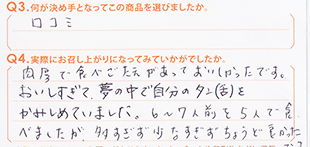 Q3.何が決め手となってこの商品を選びましたか。
口コミ
Q4.実際にお召し上がりになってみていかがでしたか。
肉厚で食べごたえがあっておいしかったです。
おいしすぎて、夢の中で自分のタン(舌)を
かみしめていました。6〜7人前を5人で食
べましたが多すぎず少なすぎずちょうど良かった